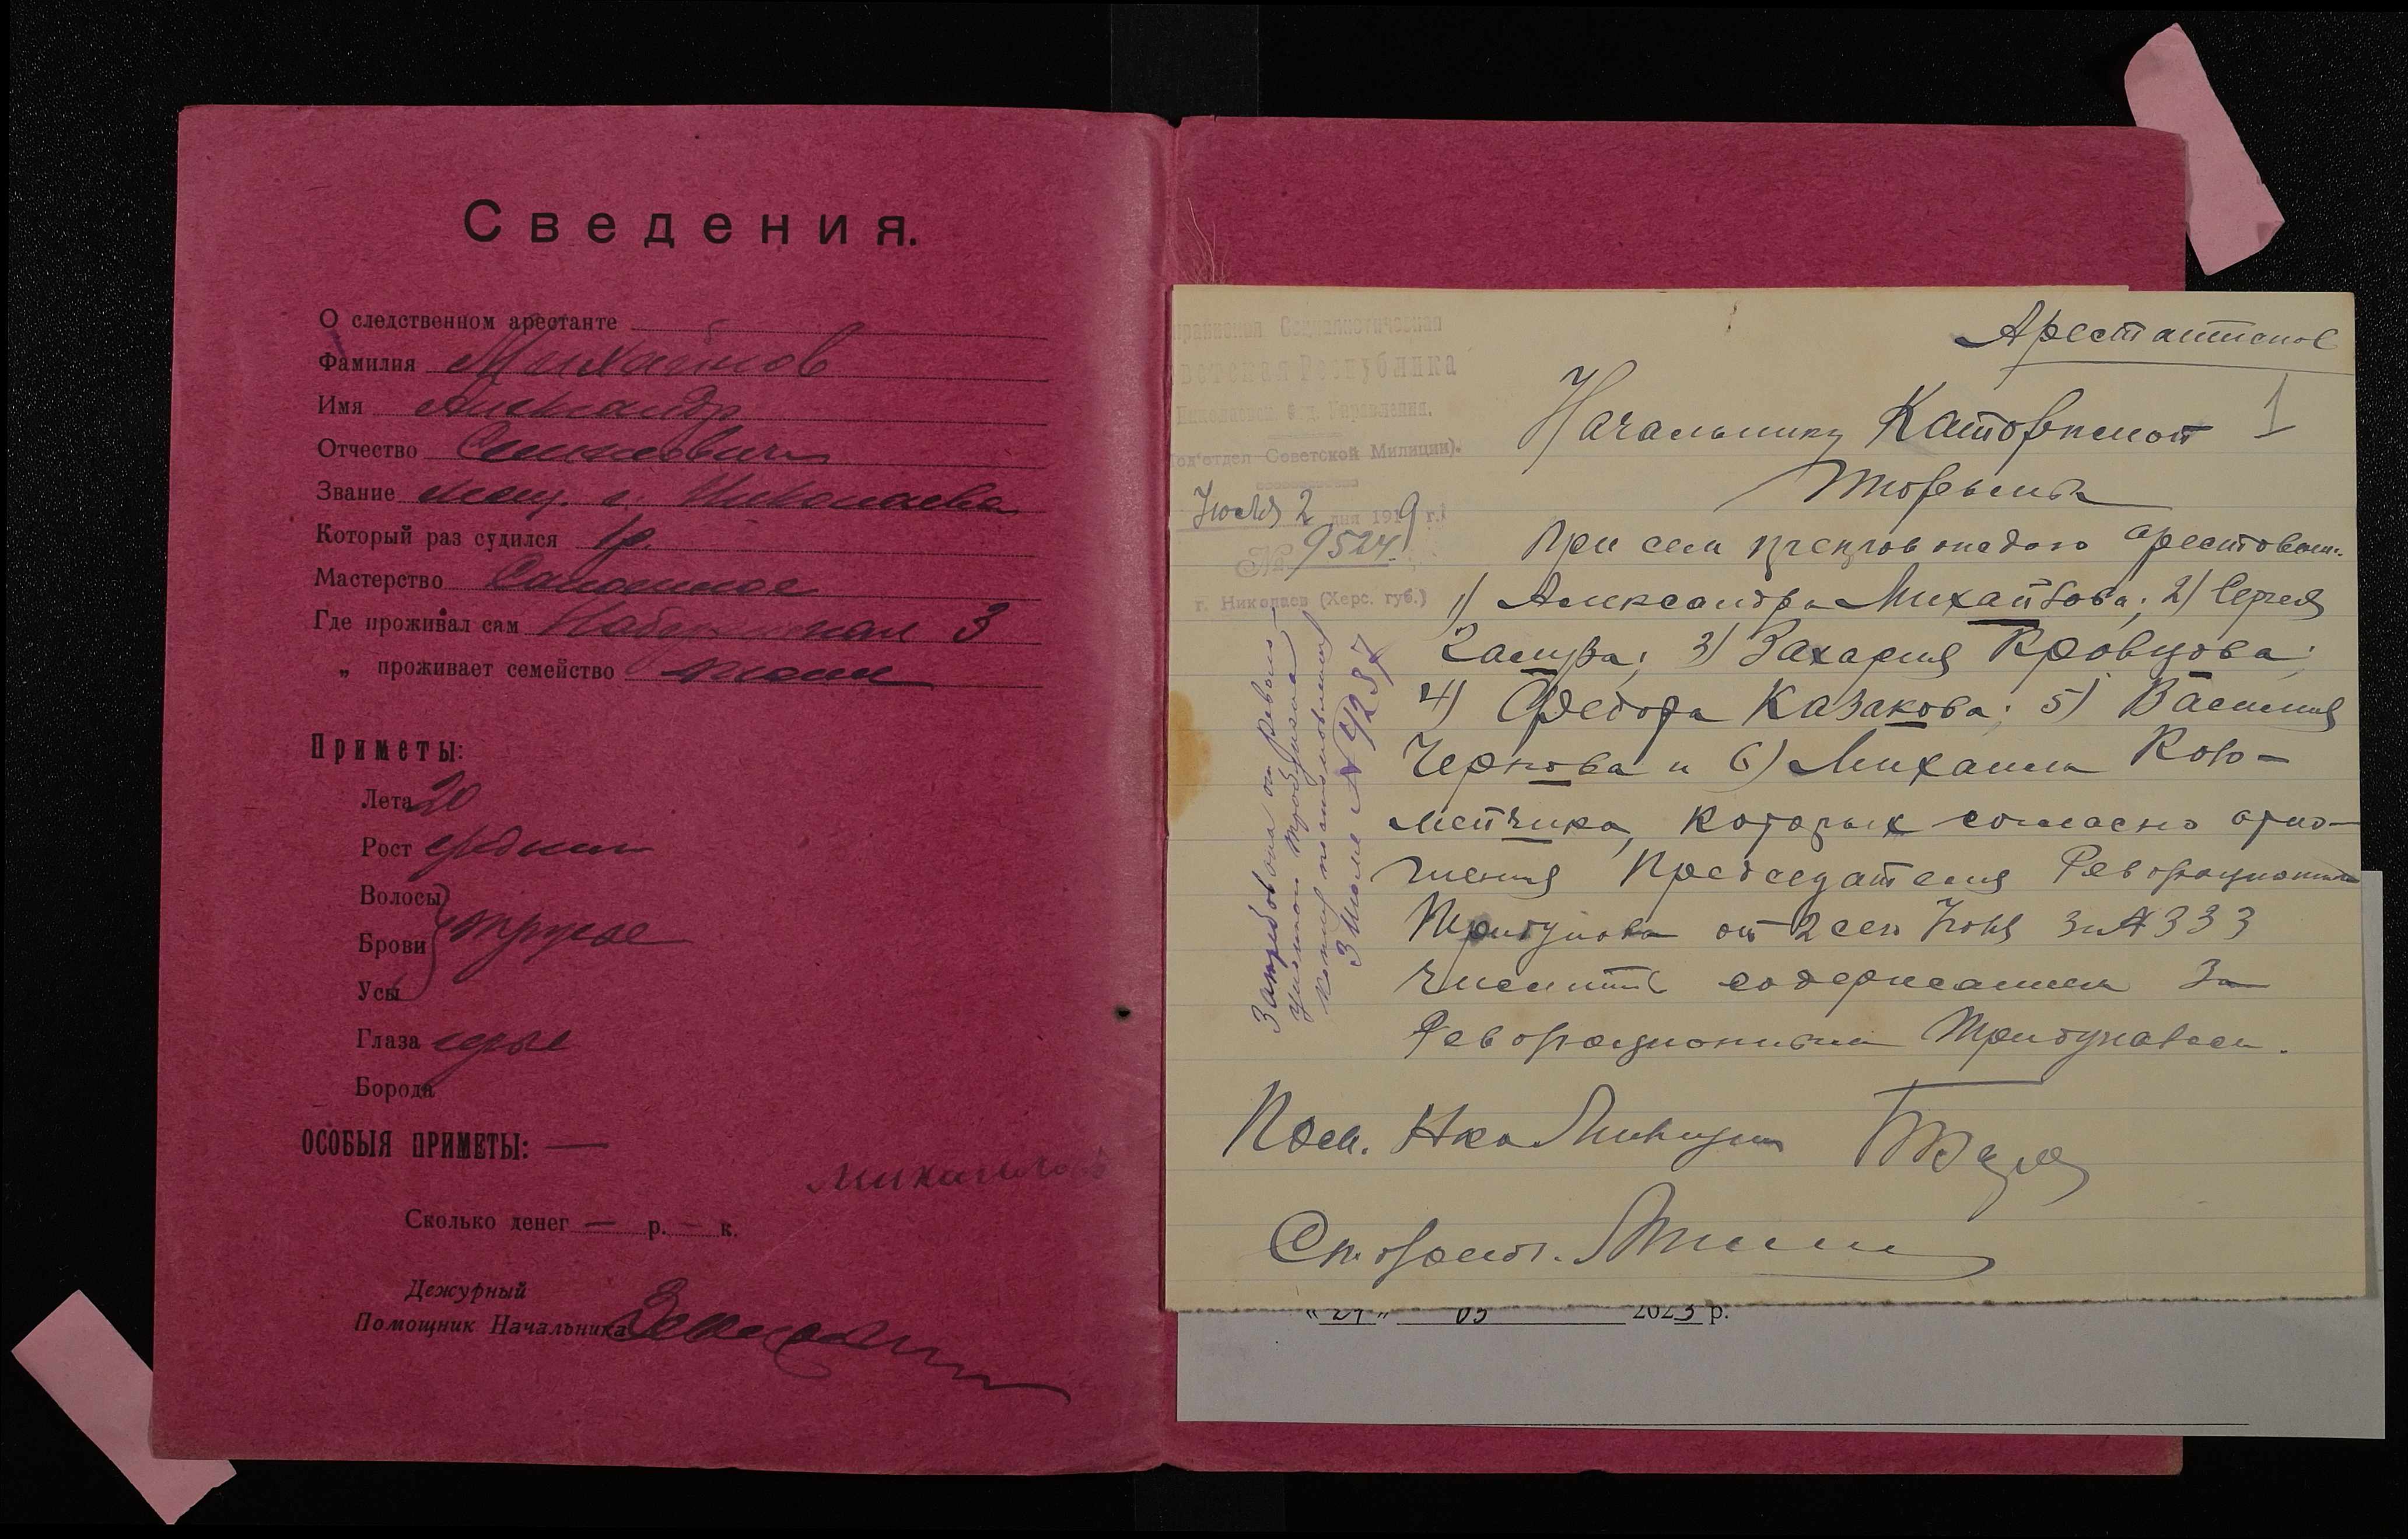 Сведения.
О следственном арестанте
Фамилия Михайлов
Имя Александр
Отчество Семенович
Звание мещ. г. Николаева
Который раз судился 1 р.
Мастерство Сапожное
Где проживал сам Набережная 3
„ проживает семейство
Приметы:
Лета 20
Рост средний
Волосы
Брови русые
Усы
Глаза серые
Борода
ОСОБЫЯ ПРИМЕТЫ: —
Михайловъ
Сколько денег — р. — к.
Дежурный
Помощник Начальника
Арестантское
1
Украинская Социалистическая
Советская Республика
Управления.
Под'отдел Советской Милиции).
Июля 2 дня 1919 г.
№ 9524
г. Николаев (Херс. губ.)
Начальнику Каторжной
Тюрьмы
При сем препровождаю арестован.
1) Александра Михайлова; 2) Сергея
3) Захария Кравцова;
4) Федора Казакова; 5) Василия
Чернова и 6) Михаила Коло-
мейчика, которых согласно отно-
шения Председателя Революционного
Трибунала от 2 сего Июля за № 333
числить содержанием за
Революционным Трибуналом.
Пом. Нка Милиции
Затребована от революц-
копия постановления
3 Июля № 4237
" 29 " 05 2023 р.